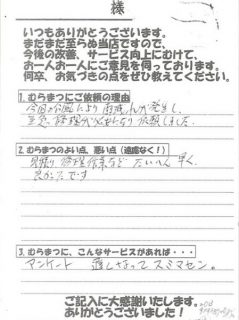 様
いつもありがとうございます。
まだまだ至らぬ当店ですので、
今後の改善、サービス向上にむけて、
お一人お一人にご意見を伺っております。
何卒、お気づきの点をぜひ教えてください。
1. むらまつにご依頼の理由
今回の台風により雨漏れが発生し、
至急、修理が必要となり依頼しました。
2. むらまつのよい点、悪い点（遠慮なく！）
見積り 修理作業など たいへん 早く
良かったです
3. むらまつに、こんなサービスがあれば・・・
アンケート 遅くなって スミマセン。
ご記入に大感謝いたします。
ありがとうございました！